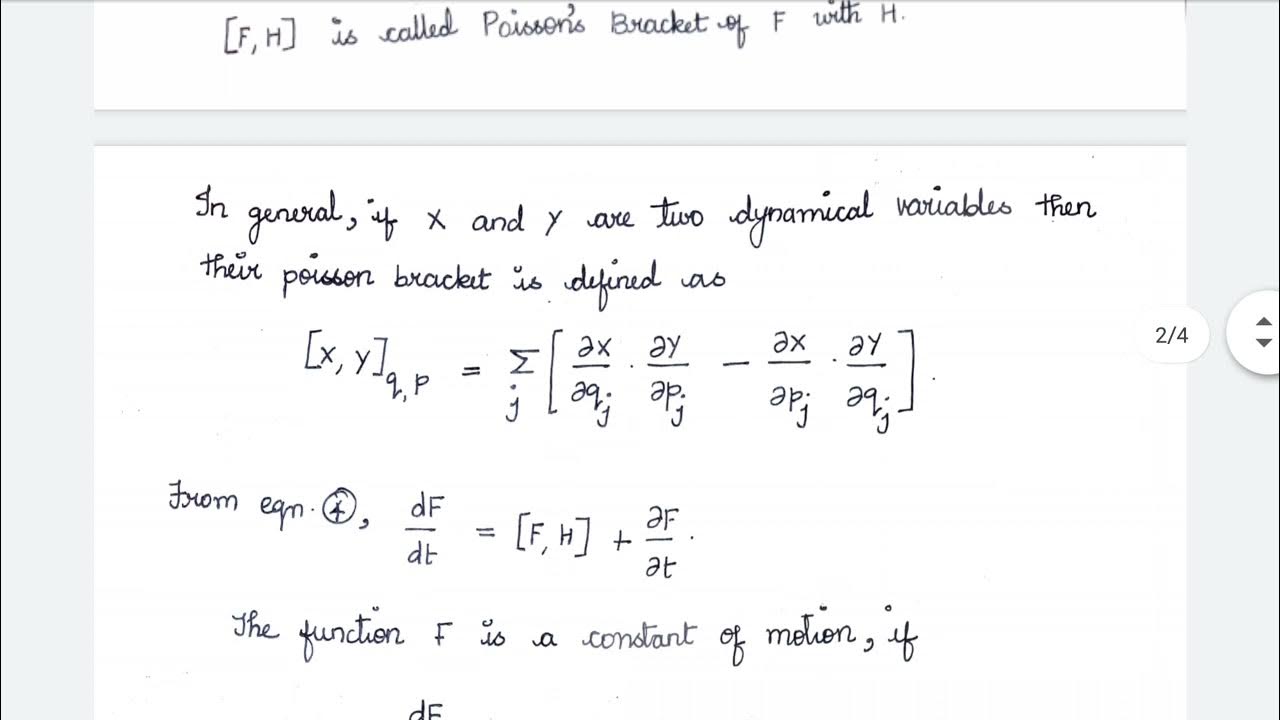 [F, H] is called Poisson's Bracket of F with H.
In general, if X and Y are two dynamical variables then
their poisson bracket is defined as
[X, Y]_{q,p} = Σ_j [ ∂X/∂q_j · ∂Y/∂p_j − ∂X/∂p_j · ∂Y/∂q_j ].
2/4
From eqn. ④, dF/dt = [F, H] + ∂F/∂t.
The function F is a constant of motion, if
dF